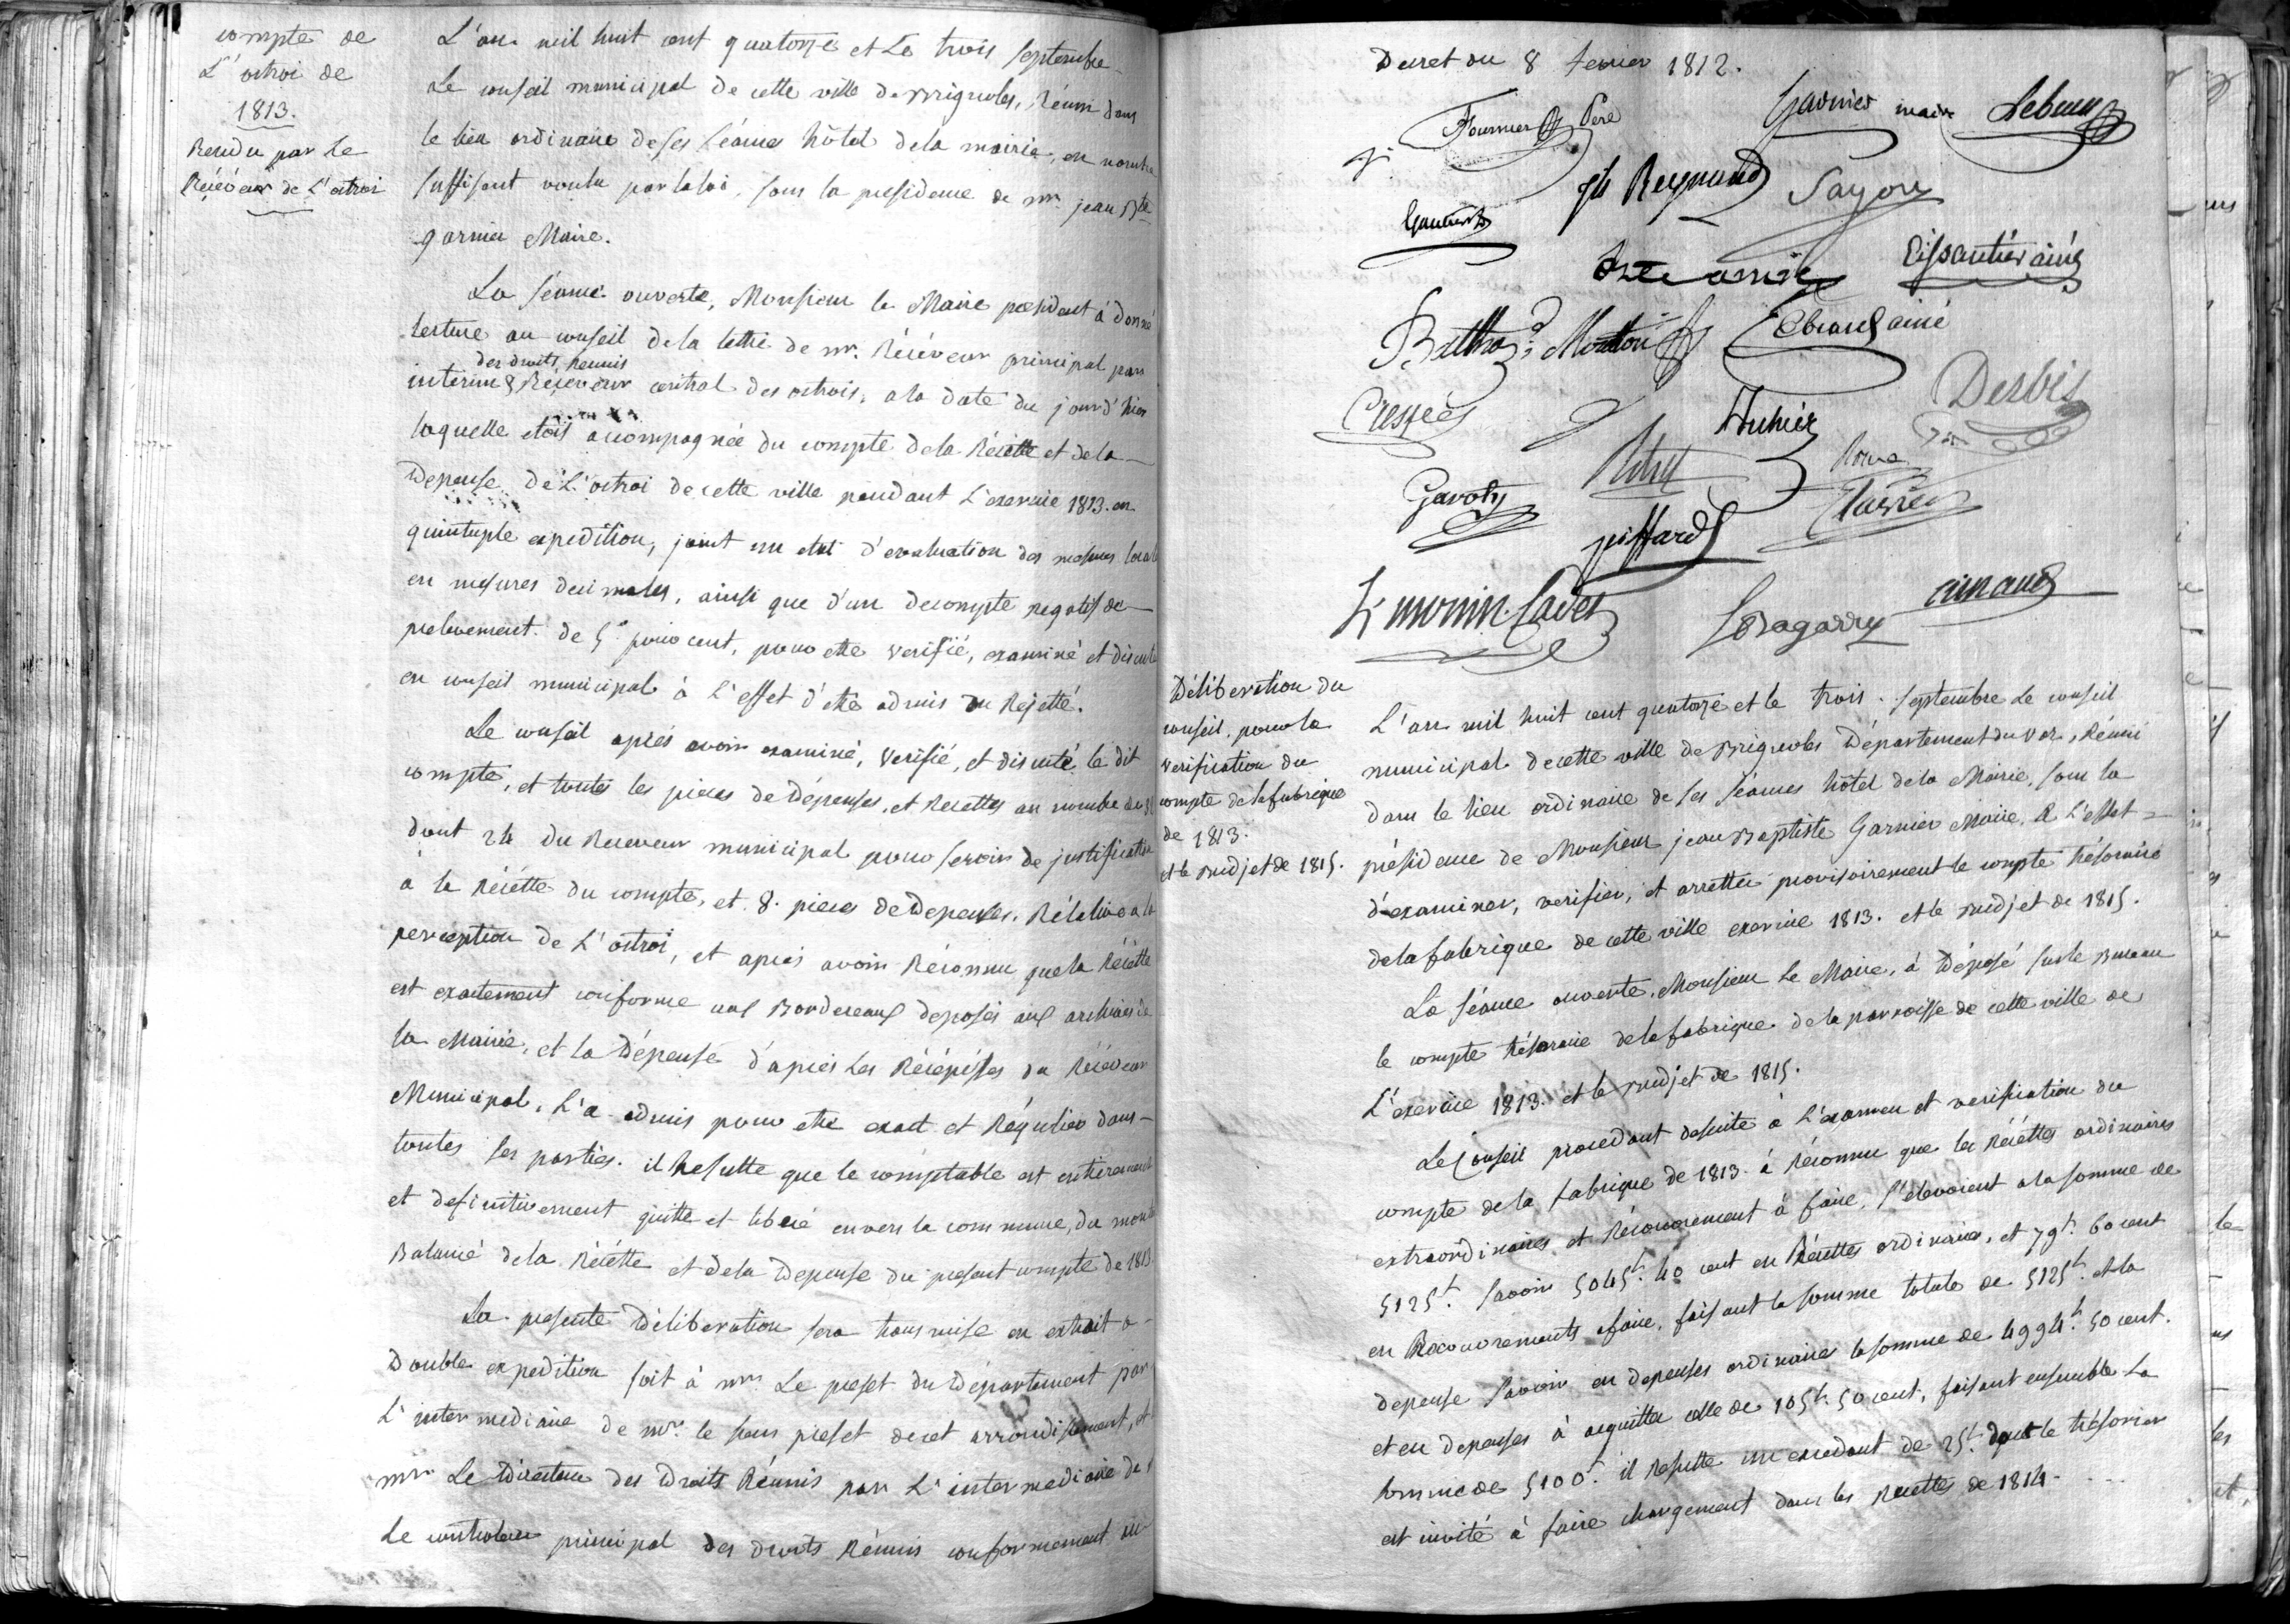 compte de
L'octroi de
1813.
Rendu par Le
Récéveur de L'octroi
L'an mil huit cent quatorze et Le trois septembre
Le conseil municipal de cette ville de Brignoles, Réuni dans
le lieu ordinaire de ses séances hôtel de la mairie, en nombre
suffisant voulu par la loi, sous la presidence de mr. jean Bte
garnier Maire.
La séance ouverte, Monsieur le Maire président à donné
lecture au conseil de la lettre de mr. Récéveur principal par
des droits Réunis
interim & Receveur central des octrois, a la date du jour d'hier
laquelle etoit accompagnée du compte de la Récétte et de la
Depense de L'octroi de cette ville pendant L'exercice 1813. en
quintuple expedition, joint un etat d'evaluation des mesures locales
en mesures decimales, ainsi que d'un decompte negatif de
prelevement de 5. pour cent, pour etre verifié, examiné et discuté
en conseil municipal à L'effet d'etre admis ou Rejetté.
Le conseil aprés avoir examiné, verifié, et discuté le dit
compte, et toutes les pieces de Dépenses, et Recettes au nombre de
dont 24 du Receveur municipal pour servir de justification
à la Récétte du compte, et 8. pieces de Depenses, Rélative a la
perception de L'octroi, et aprés avoir Réconnu que la Récétte
est exactement conforme aux Bordereaux deposés aux archives de
la Mairie, et la Dépense d'aprés les Récépissés du Récéveur
Municipal, L'a admis pour etre exact et Régulier dans
toutes ses parties. il Resulte que le comptable est entierement
et definitivement quitte et libéré envers la commune, du montant
Balancé de la Récétte et de la Depense du present compte de 1813
La presente Déliberation sera transmise en extrait a
Double expedition soit à mr. Le prefet du Département par
L'intermediaire de mr. le sous prefet de cet arrondissement, et
mr. Le Directeur des Droits Réunis par L'intermediaire de
Le controleur principal des droits Réunis conformement au
Decret du 8 fevrier 1812.
Fournier Père
Garnier maire
Lebrun
Jh Reynaud
Sayou
Gautier
Lissautier ainé
Barthy. Mouton
Ebrard ainé
Desbis
Gavoty
piffard
L. monin Cadet
Lagarry
arnaud
Déliberation du
conseil, pour la
verification du
compte de la fabrique
de 1813.
et le Budjet de 1815.
L'an mil huit cent quatorze et le trois septembre Le conseil
municipal de cette ville de Brignoles Département du var, Réuni
dans le lieu ordinaire de ses séances hôtel de la Mairie, sous la
présidence de Monsieur jean Baptiste Garnier Maire. A L'effet
d'examiner, verifier, et arretter provisoirement le compte trésoraire
de la fabrique de cette ville exercice 1813. et le Budjet de 1815.
La séance ouverte, Monsieur Le Maire, à Déposé sur le Bureau
le compte trésoraire de la fabrique de la parroisse de cette ville de
L'exercice 1813. et le Budjet de 1815.
Le Conseil procedant desuite à L'examen et verification du
compte de la fabrique de 1813. à Réconnu que les Récéttes ordinaires
extraordinaires et Récouvrement à faire, s'elevoient a la somme de
5125.f savoir 5045.f 40 cent en Récéttes ordinaires, et 79.f 60 cent
en Recouvrements afaire, faisant la somme totale de 5125.f et la
depense savoir en depenses ordinaires la somme de 4994.f 50 cent.
et en depenses à acquitter celle de 105.f 50 cent, faisant ensemble La
somme de 5100.f il Resulte un excedant de 25.f dont le trésorier
est invité à faire chargement dans les Recettes de 1814.